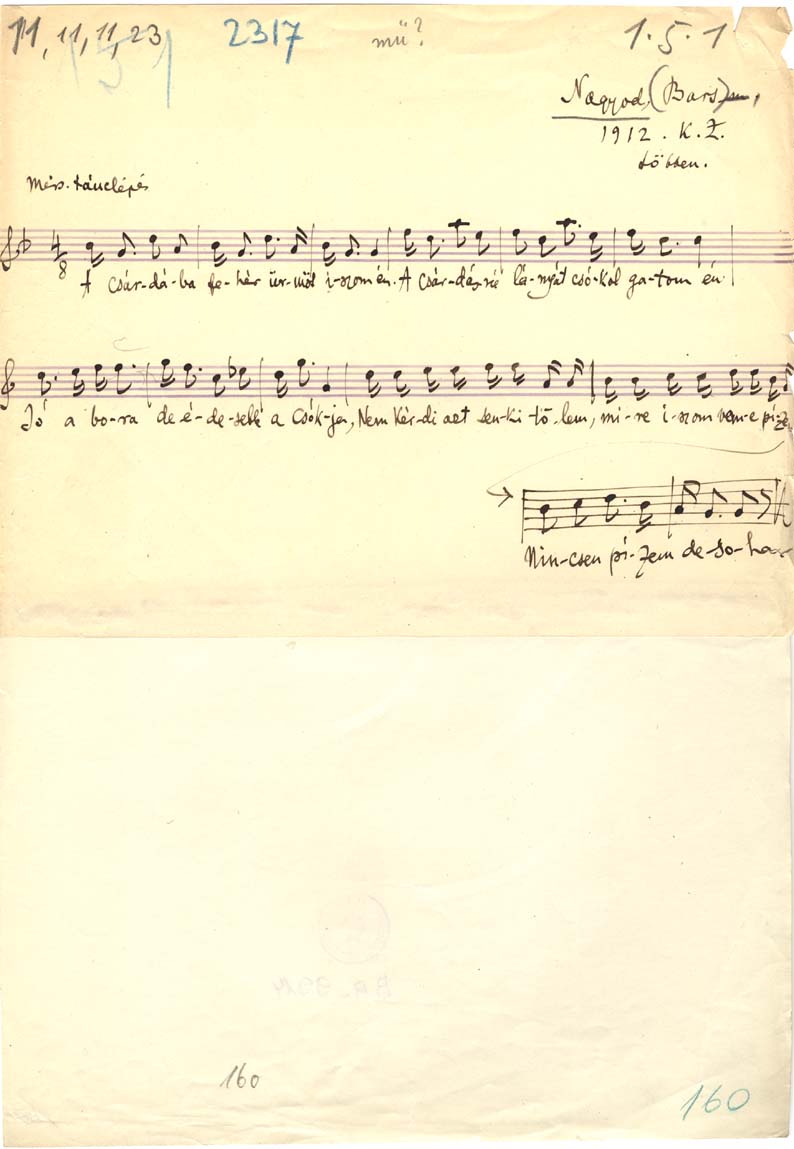 11, 11, 11, 23 2317 mű? 1.5.1
151
Nagyod, (Bars)
1912. K. Z.
többen.
Mérs. tánclépés
4
8
A csár-dá-ba fe-hér ür-möt i-szom én. A csár-dás-né lá-nyát csó-kol ga-tom én
Jó a bo-ra de é-de-sebb a csók-ja, Nem kér-di azt sen-ki tő-lem, mi-re i-szom ven-e pi-Ze
Nin-csen pi-Zem de-so-ha
160
160